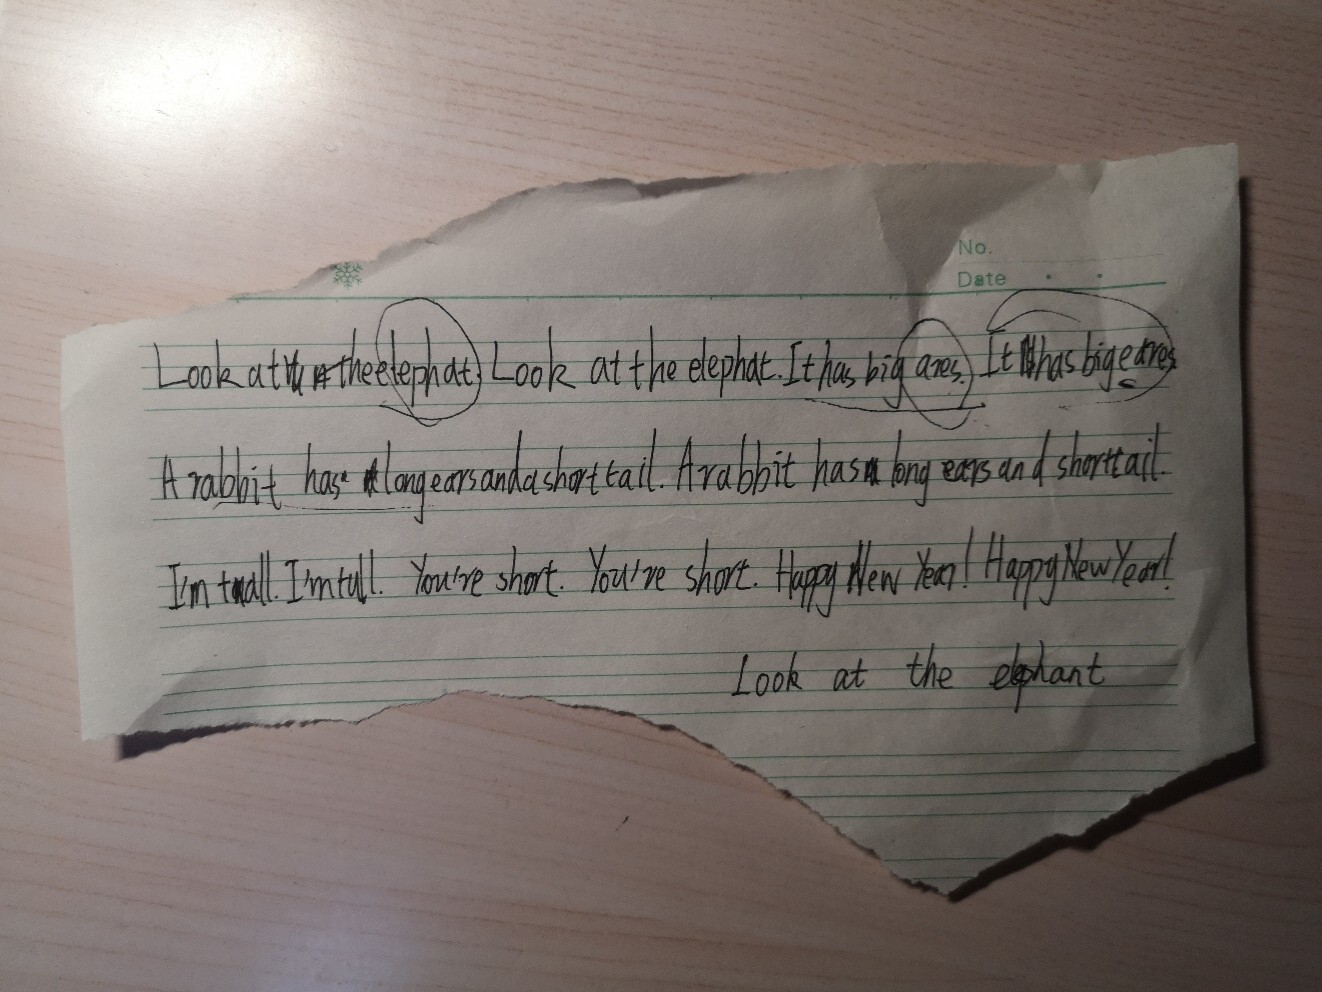 No.
Date
Look at the elephat. Look at the elephat. It has big ares. It has big eares.
A rabbit has long ears and a short tail. A rabbit has long ears and short tail.
I'm tall. I'm tall. You're short. You're short. Happy New Year! Happy New Year!
Look at the elephant